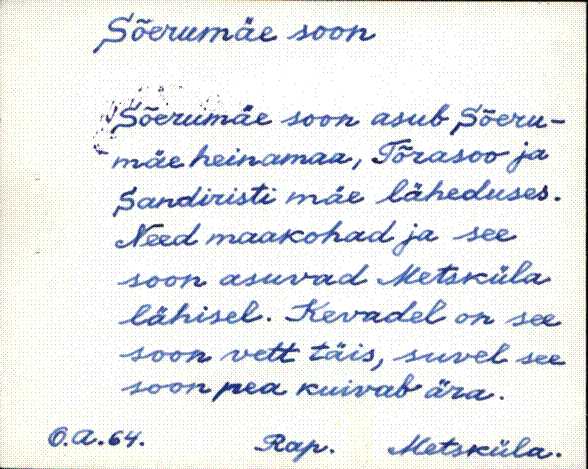 Sõerumäe soon
Sõerumäe soon asub Sõeru-
mäe heinamaa, Tõrasoo ja
Sandiristi mäe läheduses.
Need maakohad ja see
soon asuvad Metsküla
lähisel. Kevadel on see
soon vett täis, suvel see
soon pea kuivab ära.
O.A.64. Rap. Metsküla.